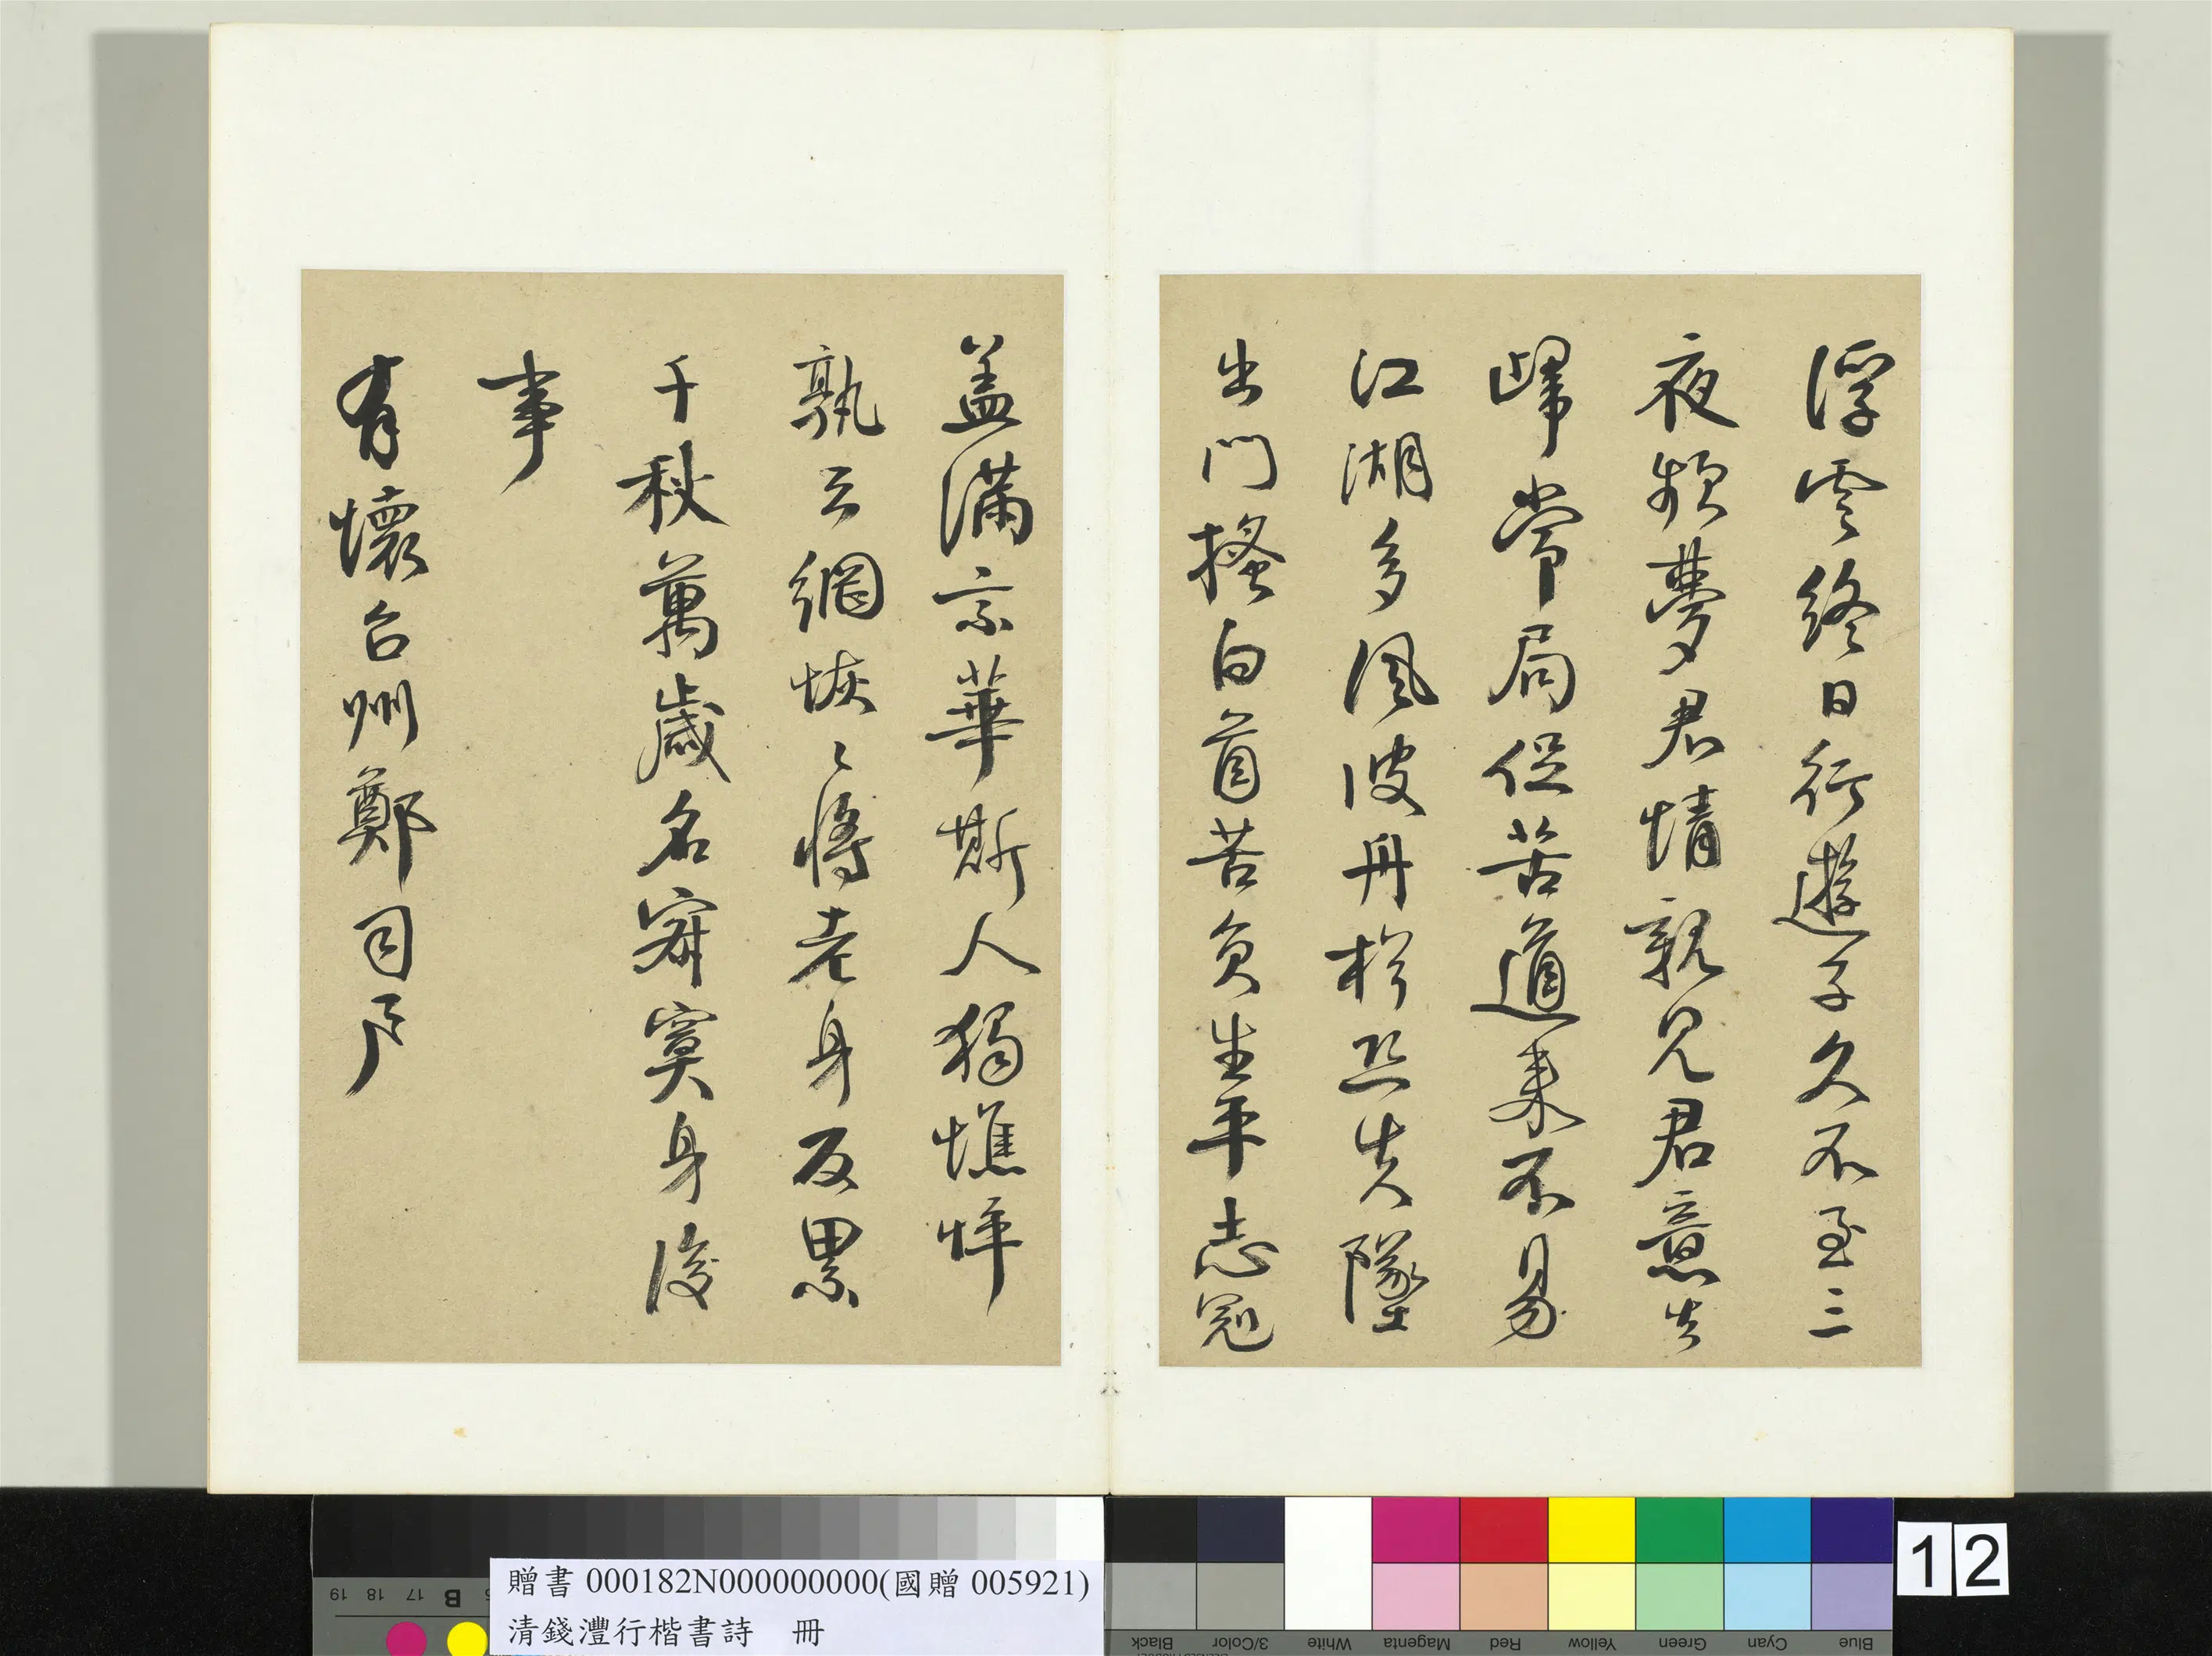 浮雲終日行遊子久不至三
夜頻夢君情親見君意告
歸常局促苦道来不易
江湖多風波舟楫恐失墜
出門搔白首苦負生平志冠
盖滿京華斯人獨憔悴
孰云網恢〻將老身反累
千秋萬歲名寂寞身後
事
有懷台州鄭司戶
贈書 000182N000000000(國贈 005921)
清錢灃行楷書詩 冊
12
19 18 17 B
Black 3/Color White Magenta Red Yellow Green Cyan Blue